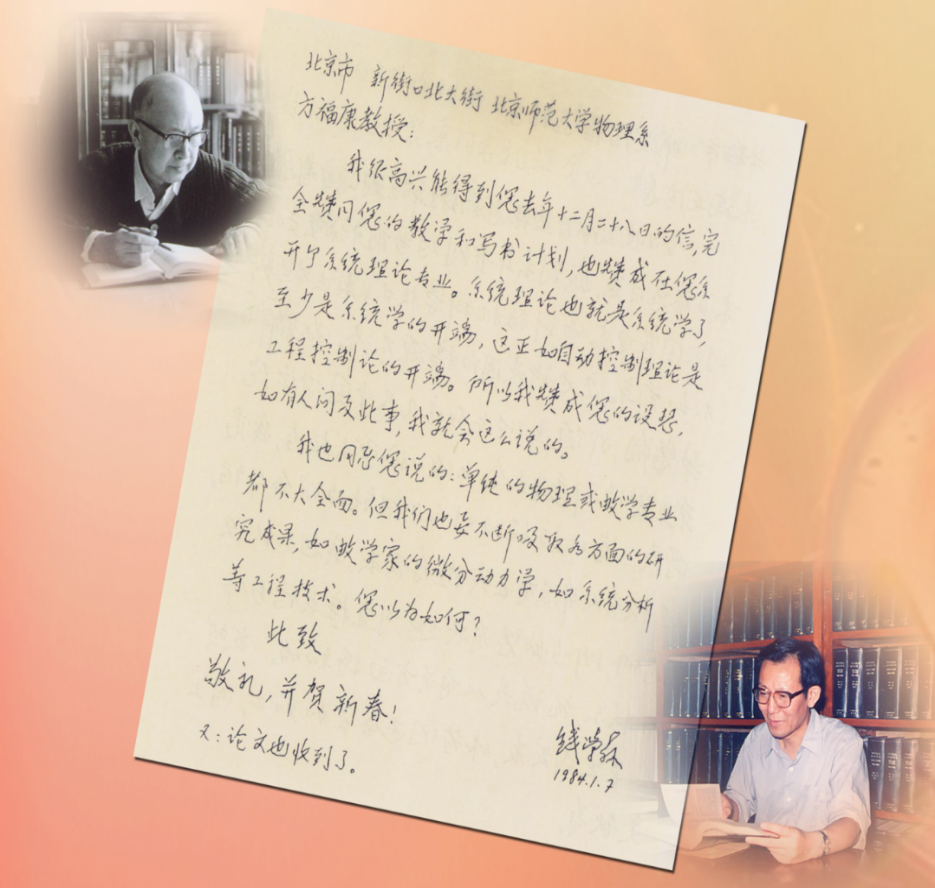 北京市 新街口北大街 北京师范大学物理系
方福康教授:
我很高兴能得到您去年十二月二十八日的信,完
全赞同您的教学和写书计划,也赞成在您系
开办系统理论专业。系统理论也就是系统学了,
至少是系统学的开端,这正如自动控制理论是
工程控制论的开端。所以我赞成您的设想,
如有人问及此事,我就会这么说的。
我也同意您说的:单纯的物理或数学专业
都不大全面。但我们也要不断吸取各方面的研
究成果,如数学家的微分动力学,如系统分析
等工程技术。您以为如何?
此致
敬礼,并贺新春!
钱学森
1984.1.7
又:论文也收到了。